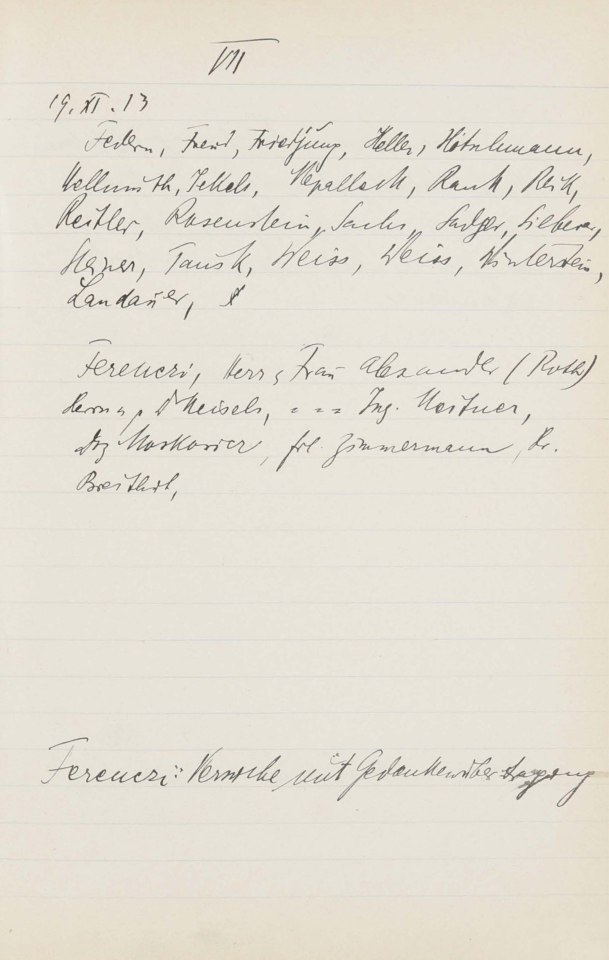 VII
19. XI. 13
Federn, Freud, Friedjung, Heller, Hitschmann,
Hellmuth, Jekels, Kspallack, Rank, Reik,
Reitler, Rosenstein, Sachs, Sadger, Silberer,
Steiner, Tausk, Weiss, Weiss, Winterstein,
Landauer,
Ferenczi, Herr u Frau Alexander (Roth)
Herrn u Meisels, = = = Ing. Meitner,
Moskovicz, Frl. Zimmermann, Dr.
Breithut,
Ferenczi: Versuche mit Gedankenübertragung